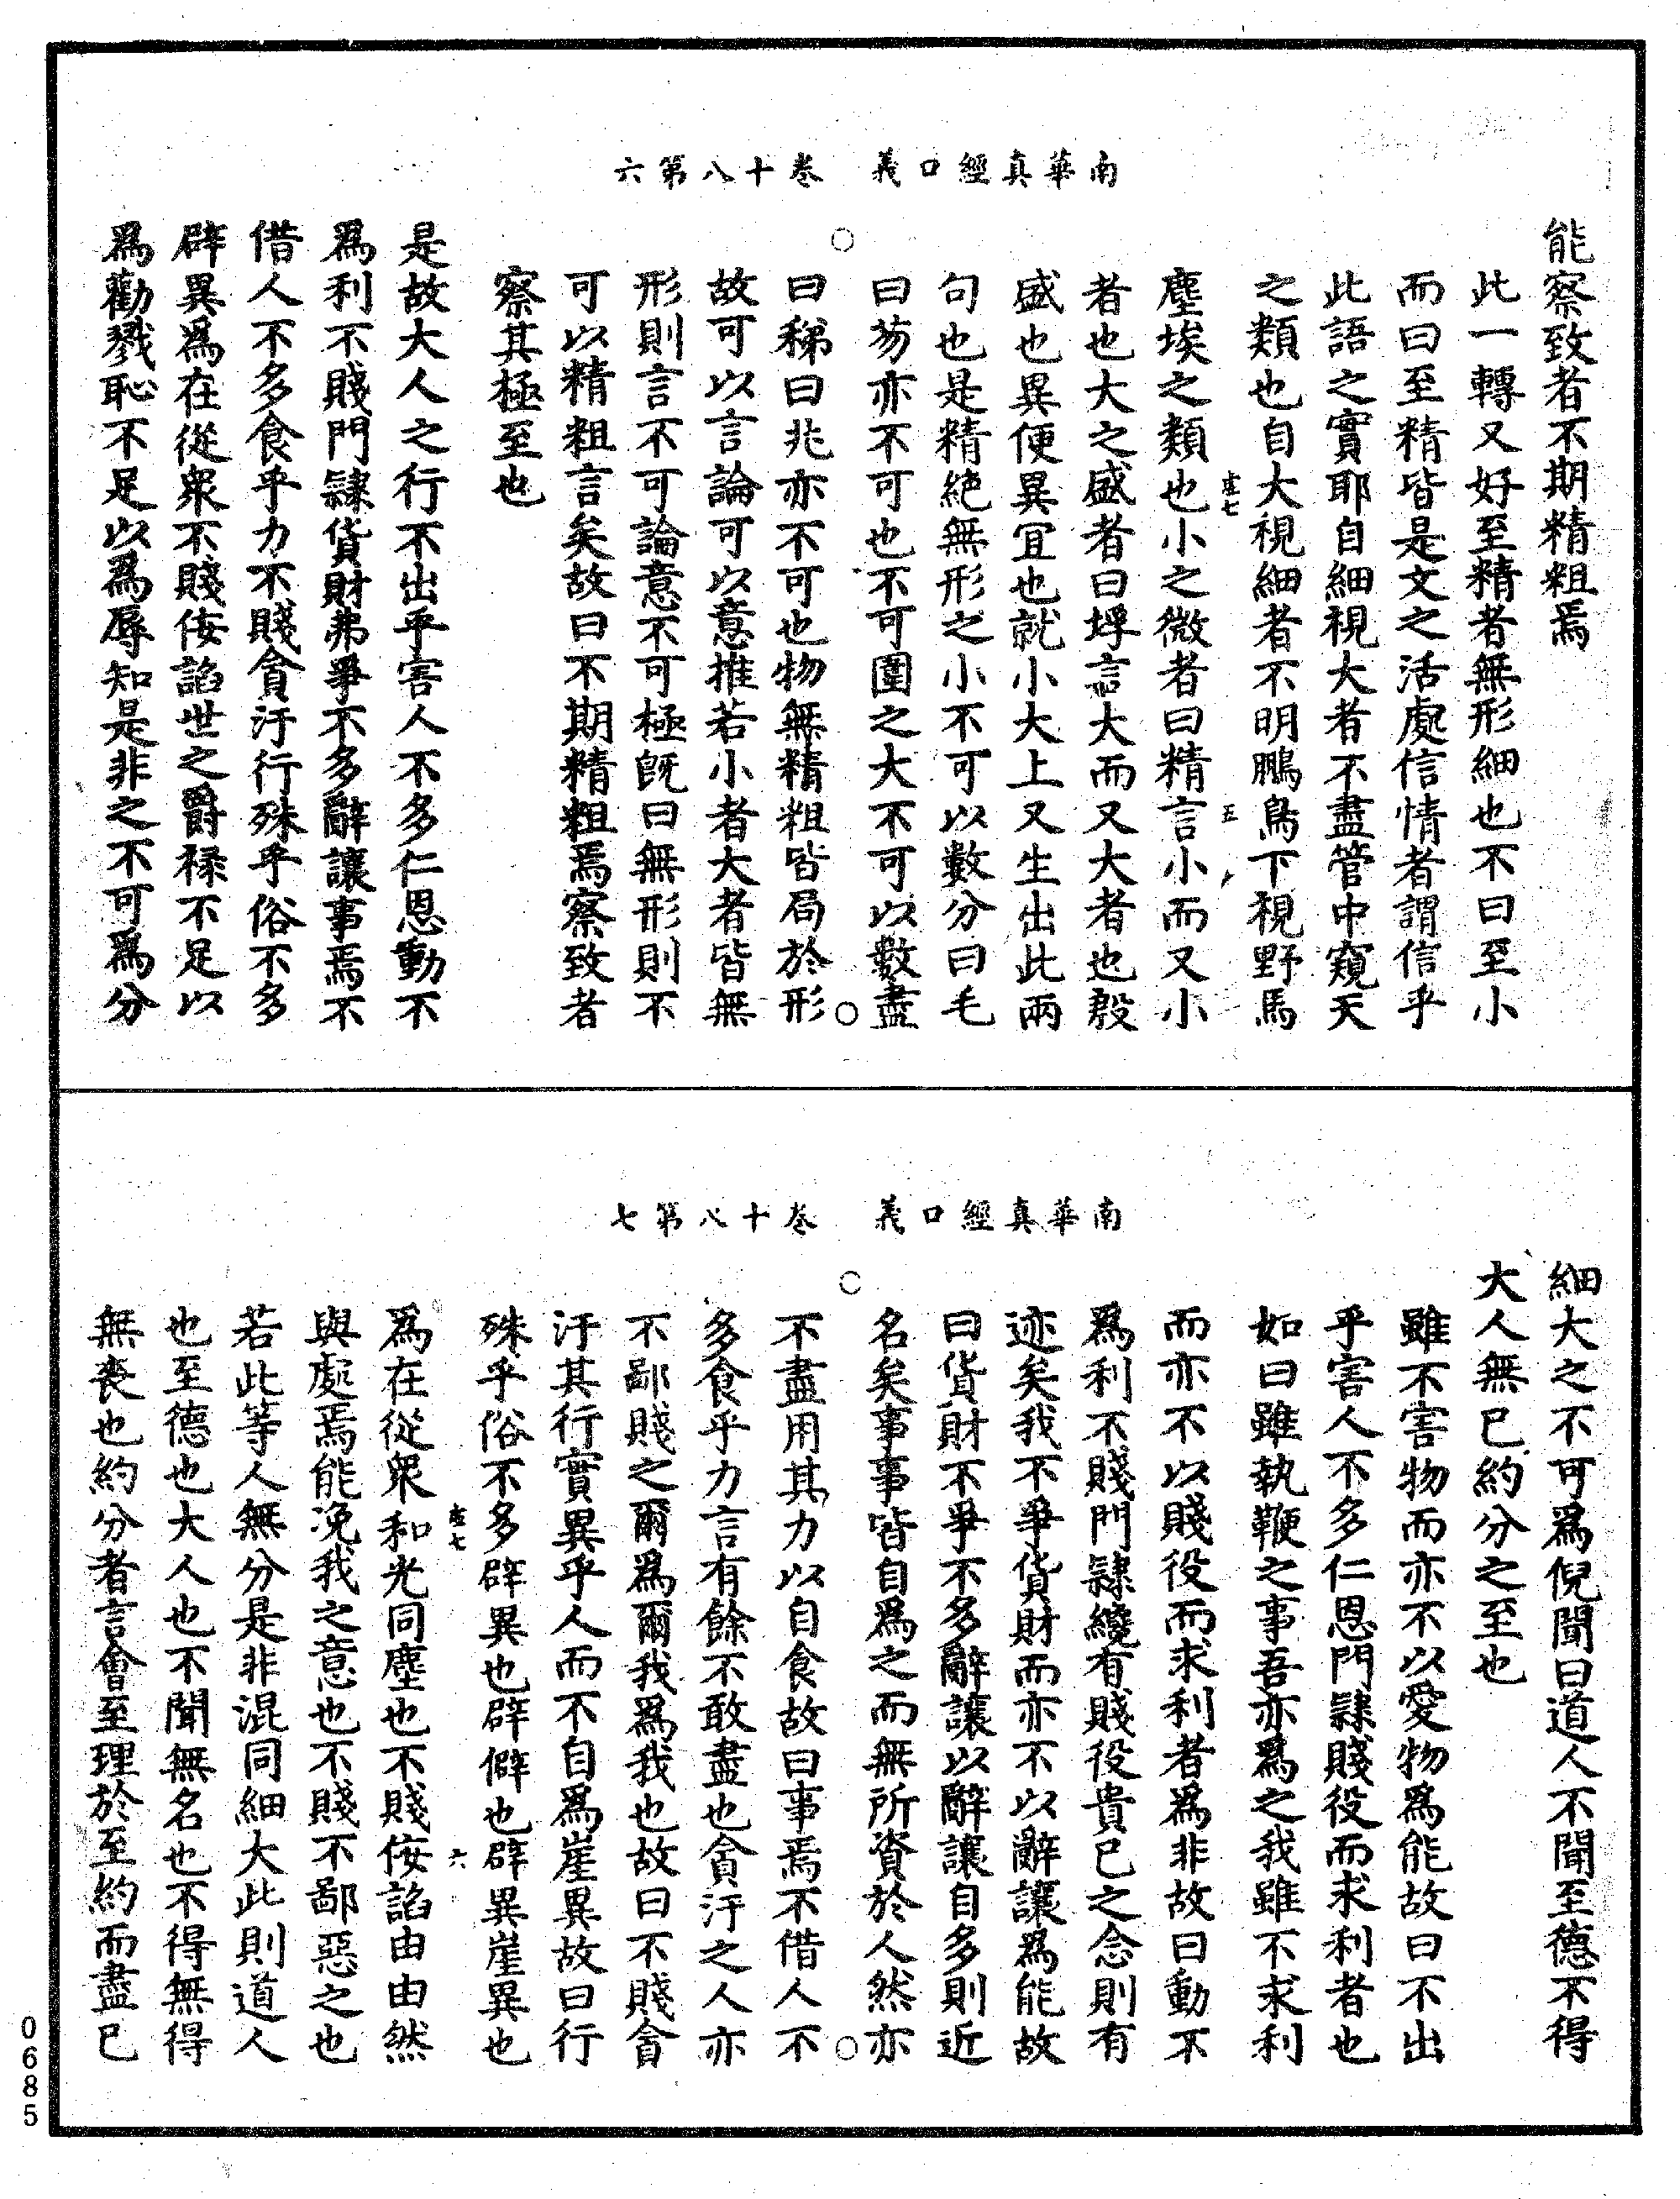 南華真經口義　卷十八第六
能察致者不期精粗焉
此一轉又好至精者無形細也不曰至小
而曰至精皆是文之活處信情者謂信乎
此語之實耶自細視大者不盡管中窺天
之類也自大視細者不明鵬鳥下視野馬
塵埃之類也小之微者曰精言小而又小
者也大之盛者曰垺言大而又大者也殷
盛也異便異宜也就小大上又生出此兩
句也是精絶無形之小不可以數分曰毛
曰芴亦不可也不可圍之大不可以數盡
曰稊曰兆亦不可也物無精粗皆局於形
故可以言論可以意推若小者大者皆無
形則言不可論意不可極旣曰無形則不
可以精粗言矣故曰不期精粗焉察致者
察其極至也
是故大人之行不出乎害人不多仁恩動不
爲利不賤門隷貨財弗爭不多辭讓事焉不
借人不多食乎力不賤貪汙行殊乎俗不多
辟異爲在從衆不賤侫諂世之爵祿不足以
爲勸戮恥不足以爲辱知是非之不可爲分
南華真經口義　卷十八第七
細大之不可爲倪聞曰道人不聞至德不得
大人無已約分之至也
雖不害物而亦不以愛物爲能故曰不出
乎害人不多仁恩門隷賤役而求利者也
如曰雖執鞭之事吾亦爲之我雖不求利
而亦不以賤役而求利者爲非故曰動不
爲利不賤門隷纔有賤役貴已之念則有
迹矣我不爭貨財而亦不以辭讓爲能故
曰貨財不爭不多辭讓以辭讓自多則近
名矣事事皆自爲之而無所資於人然亦
不盡用其力以自食故曰事焉不借人不
多食乎力言有餘不敢盡也貪汙之人亦
不鄙賤之爾爲爾我爲我也故曰不賤貪
汙其行實異乎人而不自爲崖異故曰行
殊乎俗不多辟異也辟僻也辟異崖異也
爲在從衆和光同塵也不賤侫諂由由然
與處焉能浼我之意也不賤不鄙惡之也
若此等人無分是非混同細大此則道人
也至德也大人也不聞無名也不得無得
無喪也約分者言會至理於至約而盡已
0685